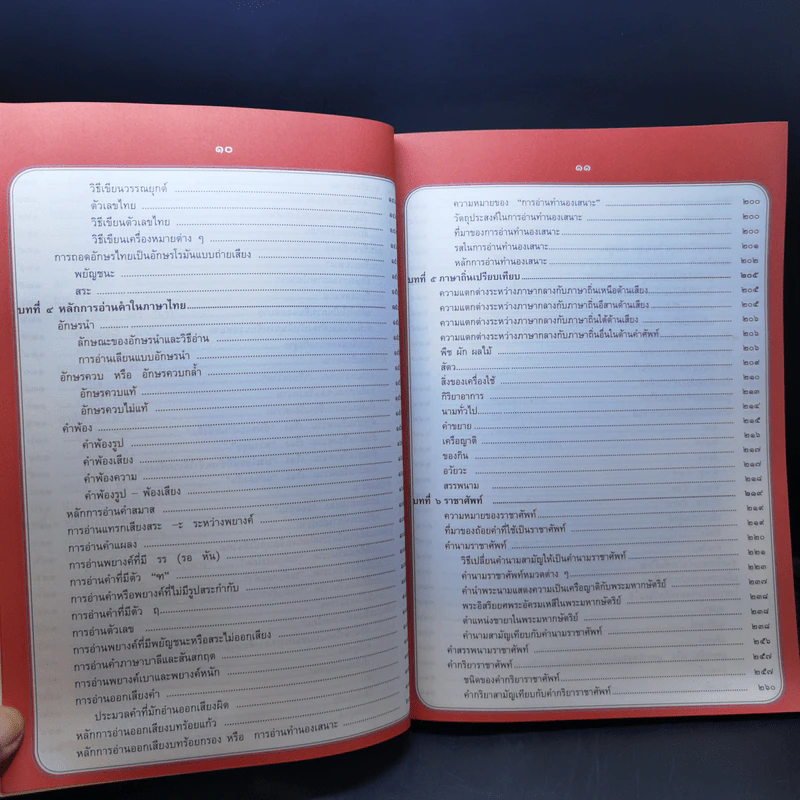 ๑๐
วิธีเขียนวรรณยุกต์
ตัวเลขไทย
วิธีเขียนตัวเลขไทย
วิธีเขียนเครื่องหมายต่าง ๆ
การถอดอักษรไทยเป็นอักษรโรมันแบบถ่ายเสียง
พยัญชนะ
สระ
บทที่ ๔ หลักการอ่านคำในภาษาไทย
อักษรนำ
ลักษณะของอักษรนำและวิธีอ่าน
การอ่านเลียนแบบอักษรนำ
อักษรควบ หรือ อักษรควบกล้ำ
อักษรควบแท้
อักษรควบไม่แท้
คำพ้อง
คำพ้องรูป
คำพ้องเสียง
คำพ้องความ
คำพ้องรูป - พ้องเสียง
หลักการอ่านคำสมาส
การอ่านแทรกเสียงสระ -ะ ระหว่างพยางค์
การอ่านคำแผลง
การอ่านพยางค์ที่มี รร (รอ หัน)
การอ่านคำที่มีตัว "ฑ"
การอ่านคำหรือพยางค์ที่ไม่มีรูปสระกำกับ
การอ่านคำที่มีตัว ฤ
การอ่านตัวเลข
การอ่านพยางค์ที่มีพยัญชนะหรือสระไม่ออกเสียง
การอ่านคำภาษาบาลีและสันสกฤต
การอ่านพยางค์เบาและพยางค์หนัก
การอ่านออกเสียงคำ
ประมวลคำที่มักอ่านออกเสียงผิด
หลักการอ่านออกเสียงบทร้อยแก้ว
หลักการอ่านออกเสียงบทร้อยกรอง หรือ การอ่านทำนองเสนาะ
๑๑
ความหมายของ "การอ่านทำนองเสนาะ" ๒๐๐
วัตถุประสงค์ในการอ่านทำนองเสนาะ ๒๐๐
ที่มาของการอ่านทำนองเสนาะ ๒๐๐
รสในการอ่านทำนองเสนาะ ๒๐๑
หลักการอ่านทำนองเสนาะ ๒๐๒
บทที่ ๕ ภาษาถิ่นเปรียบเทียบ ๒๐๕
ความแตกต่างระหว่างภาษากลางกับภาษาถิ่นเหนือด้านเสียง ๒๐๕
ความแตกต่างระหว่างภาษากลางกับภาษาถิ่นอีสานด้านเสียง ๒๐๕
ความแตกต่างระหว่างภาษากลางกับภาษาถิ่นใต้ด้านเสียง ๒๐๖
ความแตกต่างระหว่างภาษากลางกับภาษาถิ่นอื่นในด้านคำศัพท์ ๒๐๖
พืช ผัก ผลไม้ ๒๐๖
สัตว์ ๒๐๙
สิ่งของเครื่องใช้ ๒๑๐
กิริยาอาการ ๒๑๓
นามทั่วไป ๒๑๔
คำขยาย ๒๑๕
เครือญาติ ๒๑๖
ของกิน ๒๑๗
อวัยวะ ๒๑๘
สรรพนาม ๒๑๘
บทที่ ๖ ราชาศัพท์ ๒๑๙
ความหมายของราชาศัพท์ ๒๑๙
ที่มาของถ้อยคำที่ใช้เป็นราชาศัพท์ ๒๑๙
คำนามราชาศัพท์ ๒๒๐
วิธีเปลี่ยนคำนามสามัญให้เป็นคำนามราชาศัพท์ ๒๒๑
คำนามราชาศัพท์หมวดต่าง ๆ ๒๒๓
คำนำพระนามแสดงความเป็นเครือญาติกับพระมหากษัตริย์ ๒๓๗
พระอิสริยยศพระอัครมเหสีในพระมหากษัตริย์ ๒๓๘
ตำแหน่งชายาในพระมหากษัตริย์ ๒๓๘
คำนามสามัญเทียบกับคำนามราชาศัพท์ ๒๓๘
คำสรรพนามราชาศัพท์ ๒๕๖
คำกริยาราชาศัพท์ ๒๕๗
ชนิดของคำกริยาราชาศัพท์ ๒๕๗
คำกริยาสามัญเทียบกับคำกริยาราชาศัพท์ ๒๖๐